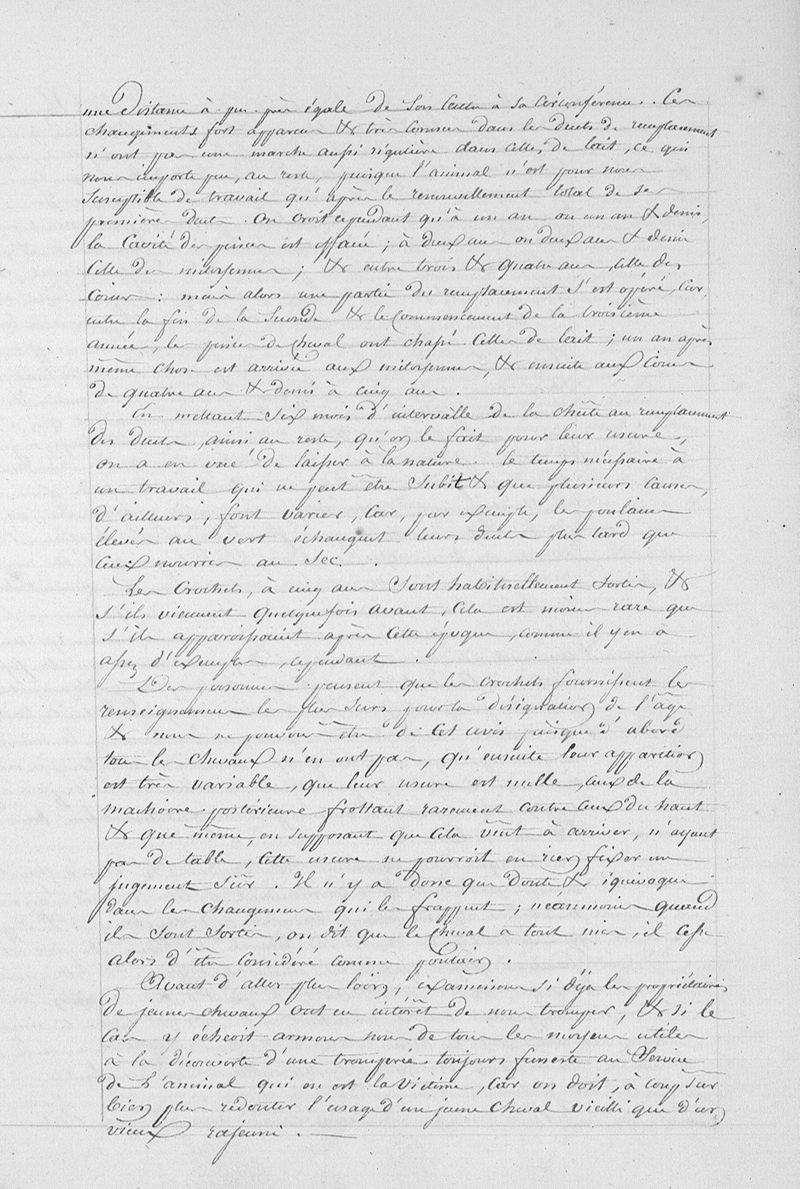 une Distance à peu près égale de son Centre à sa Circonférence. Ces
changements fort apparens & très connus dans les dents de remplacement
n'ont pas une marche aussi régulière dans celles de lait, ce qui
nous importe peu, au reste, puisque l'animal n'est pour nous
susceptible de travail qu'après le renouvellement total de ses
premières dents. On croit cependant qu'à un an ou un an & demi,
la Cavité des pinces est effacée; à deux ans ou deux ans & demi
Celle des mitoyennes; & entre trois & quatre ans, celle des
Coins: mais alors une partie du remplacement s'est opéré, Car,
entre la fin de la Seconde & le Commencement de la troisième
année, les pinces de Cheval ont chassé Celles de lait; un an après
même chose est arrivée aux mitoyennes, & ensuite aux Coins
de quatre ans & demi à cinq ans.
En mettant Six mois d'intervalle de la chûte au remplacement
des dents, ainsi au reste, qu'on le fait pour leur usure,
on a en vue de laisser à la nature le temps nécessaire à
un travail qui ne peut être Subit & que plusieurs causes,
d'ailleurs, font varier, Car, par exemple, les poulains
élevés au vert échangent leurs dents plus tard que
Ceux nourris au Sec.
Les Crochets, à cinq ans Sont habituellement Sortis, &
s'ils viennent quelquefois avant, Cela est moins rare que
s'ils apparoissoient après Cette époque, comme il y en a
assez d'exemples, cependant.
Des personnes pensent que les crochets fournissent les
renseignemens les plus Surs pour la désignation de l'âge
& nous ne pouvons être de Cet avis puisque d'abord
tous les Chevaux n'en ont pas, qu'ensuite leur apparition
est très variable, que leur usure est nulle, ceux de la
machoire postérieure frottant rarement contre ceux du haut
& que même, en supposant que Cela vînt à arriver, n'ayant
pas de table, Cette usure ne pourroit en rien fixer un
jugement Sûr. Il n'y a donc que doute & équivoque
dans les Changemens qui les frappent; néanmoins quand
ils Sont Sortis, on dit que le Cheval a tout mis, il cesse
alors d'être Considéré comme poulain.
Avant d'aller plus loin, examinons si déja les propriétaires
de jeunes chevaux ont eu intérêt de nous tromper, & si le
Cas y échéoit armons nous de tous les moyens utiles
à la découverte d'une tromperie toujours funeste au Service
de l'animal qui en est la victime, Car on doit, à coup Sur
bien plus redouter l'usage d'un jeune Cheval vieilli que d'un
vieux rajeuni.